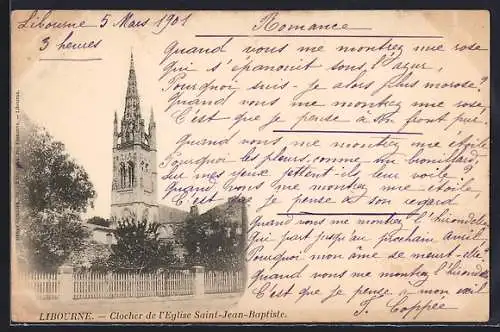 Libourne 5 Mars 1901
3 heures
Romance
Quand vous me montrez une rose
qui s'épanouit sous l'azur,
Pourquoi suis-je alors plus morose ?
Quand vous me montrez une rose,
C'est que je pense à son front pur.
Quand vous me montrez une étoile
Pourquoi les pleurs, comme un brouillard,
Sur mes yeux jettent-ils leur voile ?
Quand vous me montrez une étoile,
C'est que je pense à son regard
Quand vous me montrez l'hirondelle
Qui part jusqu'au prochain avril
Pourquoi mon âme se meurt-elle
Quand vous me montrez l'hirondelle
C'est que je pense à mon exil
F. Coppée
LIBOURNE. — Clocher de l'Eglise Saint-Jean-Baptiste.